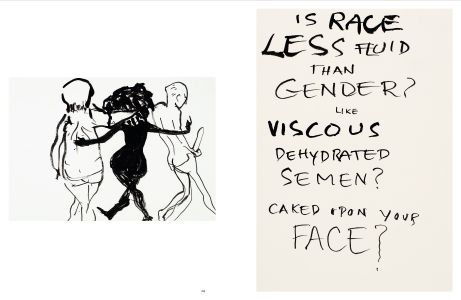 IS RACE
LESS FLUID
THAN
GENDER?
LIKE
VISCOUS
DEHYDRATED
SEMEN?
CAKED UPON YOUR
FACE?